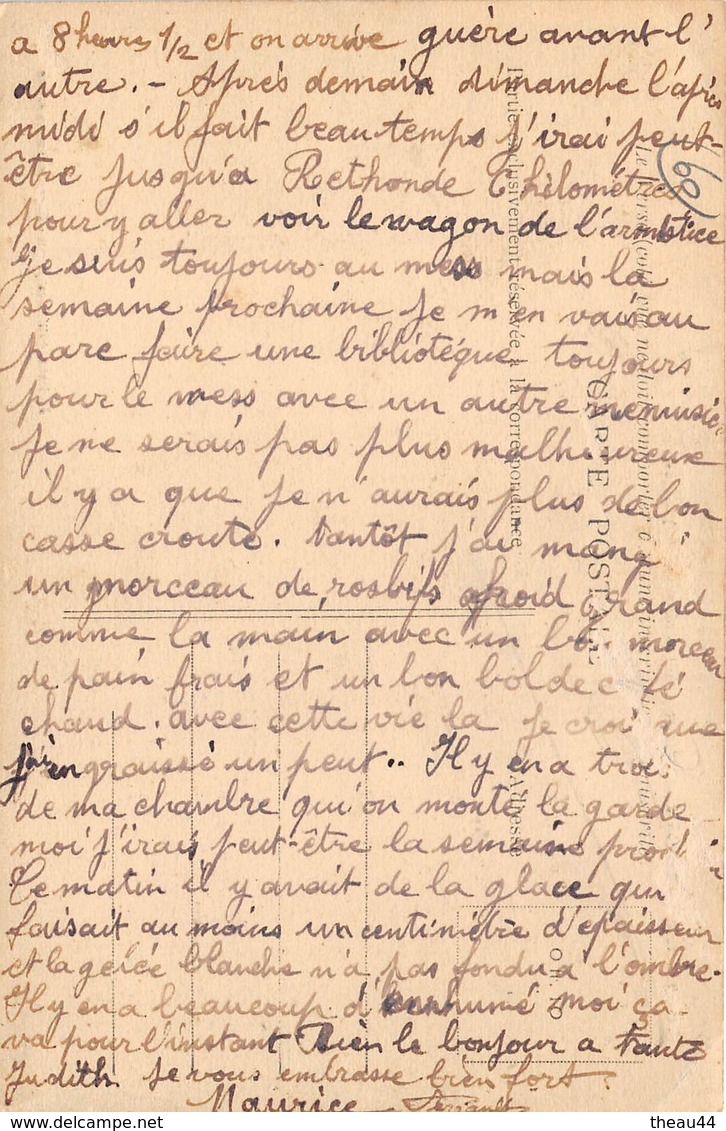 a 8 heures 1/2 et on arrive guère avant l'
autre. - Après demain dimanche l'après
midi s'il fait beau temps j'irai peut-
être jusqu'a Rethonde 6 kilométres
pour y aller voir le wagon de l'armistice
je suis toujours au mess mais la
semaine prochaine je m'en vais au
parc faire une bibliotéque toujours
pour le mess avec un autre menuisier
je ne serais pas plus malheureux
il y a que je n'aurais plus de bon
casse croute. tantôt j'ai mangé
un morceau de rosbifs froid grand
comme la main avec un bon morceau
de pain frais et un bon bol de café
chaud. avec cette vie la je croi que
j'ai engraissé un peut.. Il y en a trois
de ma chambre qu'on monte la garde
moi j'irais peut-être la semaine
Ce matin il y avait de la glace qui
faisait au moins un centimètre d'epaisseur
et la gelée blanche n'a pas fondu a l'ombre.
Il y en a beaucoup d'enrhumé moi ça
va pour l'instant Bien le bonjour a tante
Judith je vous embrasse bien fort.
Maurice
60
CARTE POSTALE
Partie exclusivement réservée à la correspondance
Adresse
theau44